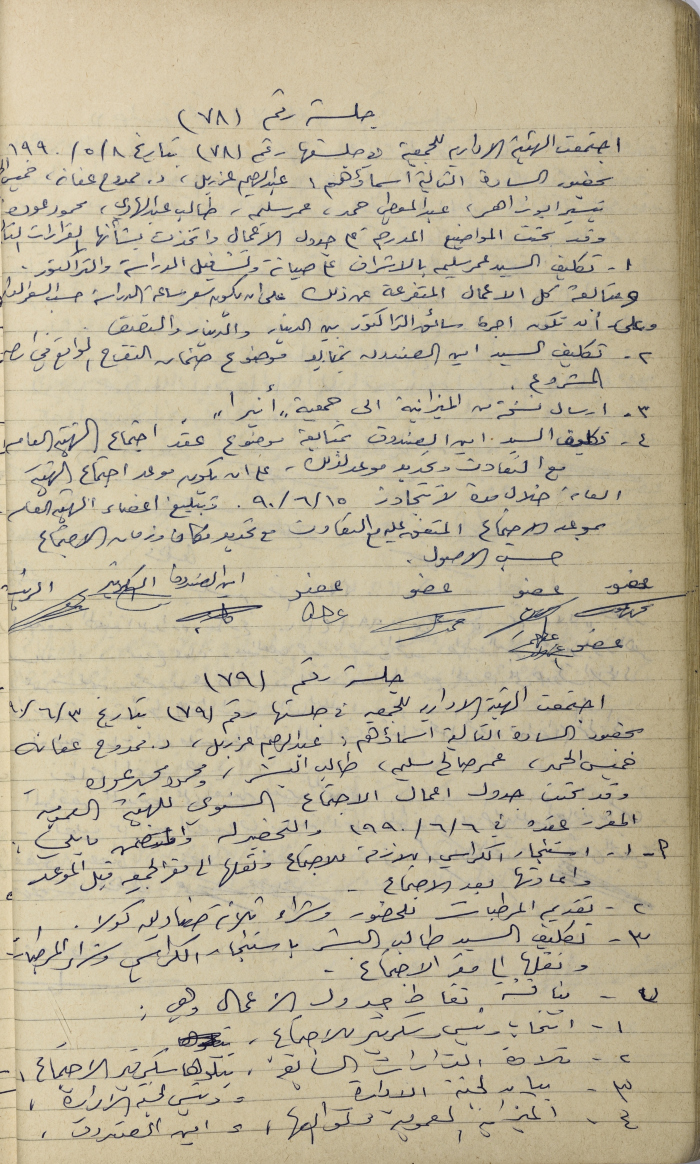 جلسة رقم (٧٨)
اجتمعت الهيئة الادارية للجمعية في جلستها رقم (٧٨) بتاريخ ٨/٥/١٩٩٠
بحضور السادة التالية اسماؤهم: عبدالرحيم غزيل، د. ممدوح عفانه، خميس
تيسير ابو زاهر، عبدالمعطي حمد، عمر سليم، طالب عبدالهادي، محمود عوده
وقد بحثت المواضيع المدرجة على جدول الاعمال واتخذت بشأنها القرارات
١- تكليف السيد عمر سليم بالاشراف على صيانة وتشغيل الدراسة والتراكتور.
ومتابعة كل الاعمال المتفرعة عن ذلك على ان يكون سعر ساعة الدراسة حسب السعر
وعلى أن تكون اجرة سائق التراكتور بين الدينار والدينار والنصف.
٢- تكليف السيد امين الصندوق بمتابعة موضوع ضمان التفاح الواقع في ارض
المشروع.
٣- ارسال نسخة من الميزانية الى جمعية "أنيرا"
٤- تكليف السيد امين الصندوق بمتابعة موضوع عقد اجتماع الهيئة العامة
مع التعاون وتحديد موعد لذلك، على ان يكون موعد اجتماع الهيئة
العامة خلال مدة لا تتجاوز ١٥/٦/٩٠. وتبليغ اعضاء الهيئة العامة
بموعد الاجتماع المتفق عليه مع التعاون مع تحديد مكان وزمان الاجتماع
حسب الاصول.
عضو عضو عضو عضو امين الصندوق السكرتير الرئيس
عضو
جلسة رقم (٧٩)
اجتمعت الهيئة الادارية للجمعية في جلستها رقم (٧٩) بتاريخ ٣/٦/
بحضور السادة التالية اسماؤهم: عبدالرحيم غزيل، د. ممدوح عفانه
خميس الحمد، عمر صالح سليم، طالب البشر، ومحمود محمد عوده
وقد بحثت جدول اعمال الاجتماع السنوي للهيئة العمومية
المقرر عقده في ٦/٦/١٩٩٠ والتحضير له ما يلي:
١- استئجار الكراسي اللازمة للاجتماع ونقلها الى مقر الجمعية قبل الموعد
واعادتها بعد الاجتماع.
٢- تقديم المرطبات للحضور وشراء ثلاثة صناديق كولا.
٣- تكليف السيد طالب البشر باستئجار الكراسي وشراء المرطبات
ونقلها الى مقر الاجتماع.
مناقشة نقاط جدول الاعمال وهي:
١- انتخاب رئيس وسكرتير للاجتماع،
٢- تلاوة القرارات السابقة، يتلوها سكرتير الاجتماع،
٣- بيان لجنة الادارة، رئيس لجنة الادارة،
٤- الميزانية العمومية، امين الصندوق،